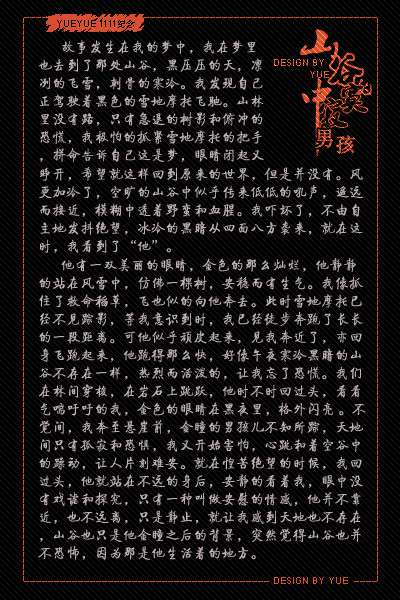 YUEYUE 1111纪念
山谷裏的
中夜
男孩
DESIGN BY
YUE
故事发生在我的梦中，我在梦里
也去到了那处山谷，黑压压的天，凛
冽的飞雪，刺骨的寒冷。我发现自己
正驾驶着黑色的雪地摩托飞驰。山林
里没有路，只有急退的树影和俯冲的
恐慌，我极怕的抓紧雪地摩托的把手
，拼命告诉自己这是梦，眼睛闭起又
睁开，希望就这样回到原来的世界，但是并没有。风
更加冷了，空旷的山谷中似乎传来低低的吼声，遥远
而接近，模糊中透着野蛮和血腥。我吓坏了，不由自
主地发抖绝望，冰冷的黑暗从四面八方袭来，就在这
时，我看到了“他”。
他有一双美丽的眼睛，金色的那么灿烂，他静静
的站在风雪中，仿佛一棵树，安稳而有生气。我像抓
住了救命稻草，飞也似的向他奔去。此时雪地摩托已
经不见踪影，等我意识到时，我已经徒步奔跑了长长
的一段距离。可他似乎顽皮起来，见我奔近了，亦回
身飞跑起来，他跑得那么快，好像午夜寒冷黑暗的山
谷不存在一样，热烈而活泼的，让我忘了恐慌。我们
在林间穿梭，在岩石上跳跃，他时不时回过头，看看
气喘吁吁的我，金色的眼睛在黑夜里，格外闪亮。不
觉间，我奔至悬崖前，金瞳的男孩儿不知所踪，天地
间只有孤寂和恐惧，我又开始害怕，心跳和着空谷中
的踏动，让人片刻难安。就在惶苦绝望的时候，我回
过头，他就站在不远的身后，安静的看着我，眼中没
有戏谑和探究，只有一种叫做安慰的情感，他并不靠
近，也不远离，只是静止，就让我感到天地也不存在
，山谷也只是他金瞳之后的背景，突然觉得山谷也并
不恐怖，因为那是他生活着的地方。
DESIGN BY YUE